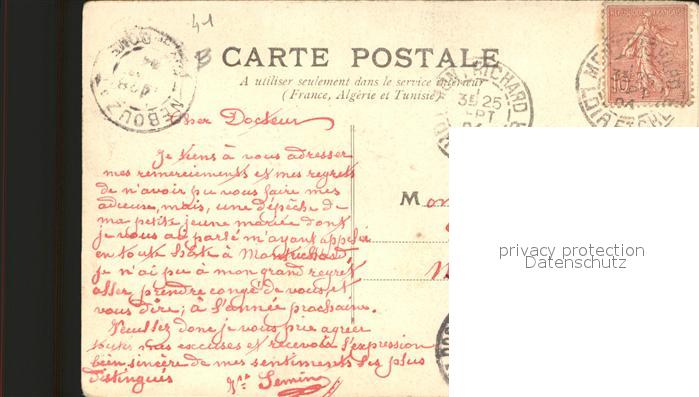 41
B
CARTE POSTALE
A utiliser seulement dans le service intérieur
(France, Algérie et Tunisie)
MONTRICHARD
3E 25
SEPT
04
LOIR ET CHER
Cher Docteur
Je viens à vous adresser
mes remerciements et mes regrets
de n'avoir pu vous faire mes
adieux, mais, une dépêche de
ma petite jeune mariée dont
je vous ai parlé m'ayant appelée
en toute hâte à Montrichard
je n'ai pu à mon grand regret
aller prendre congé de vous et
vous dire; à l'année prochaine.
Veuillez donc je vous prie agréer
toutes mes excuses et recevoir l'expression
bien sincère de mes sentiments les plus
distingués
Semin
M
privacy protection
Datenschutz